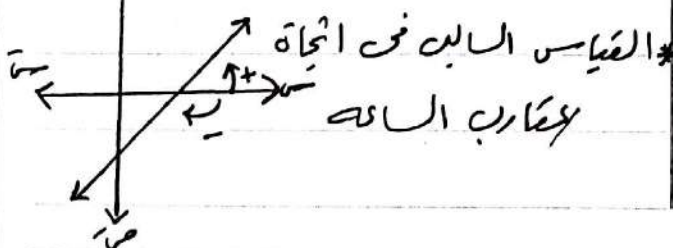 *القياس السالب فى اتجاة
عقارب الساعه
سَ
+
س
-
صَ